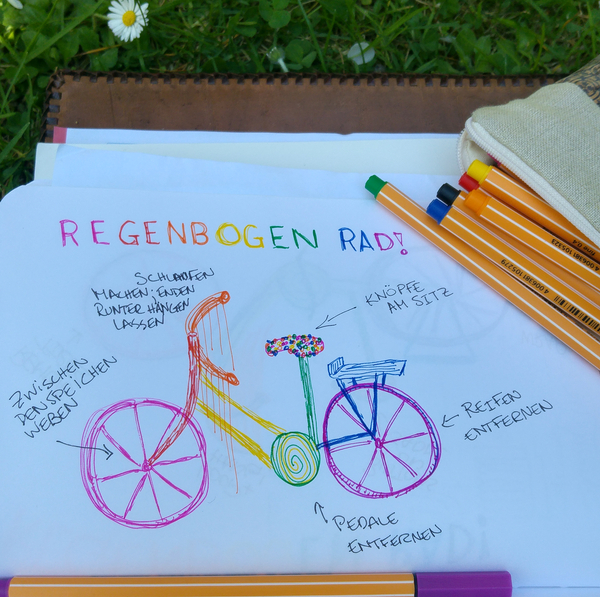 REGENBOGEN RAD!
SCHLAUFEN
MACHEN; ENDEN
RUNTER HÄNGEN
LASSEN
KNÖPFE
AM SITZ
ZWISCHEN
DEN SPEICHEN
WEBEN
REIFEN
ENTFERNEN
PEDALE
ENTFERNEN